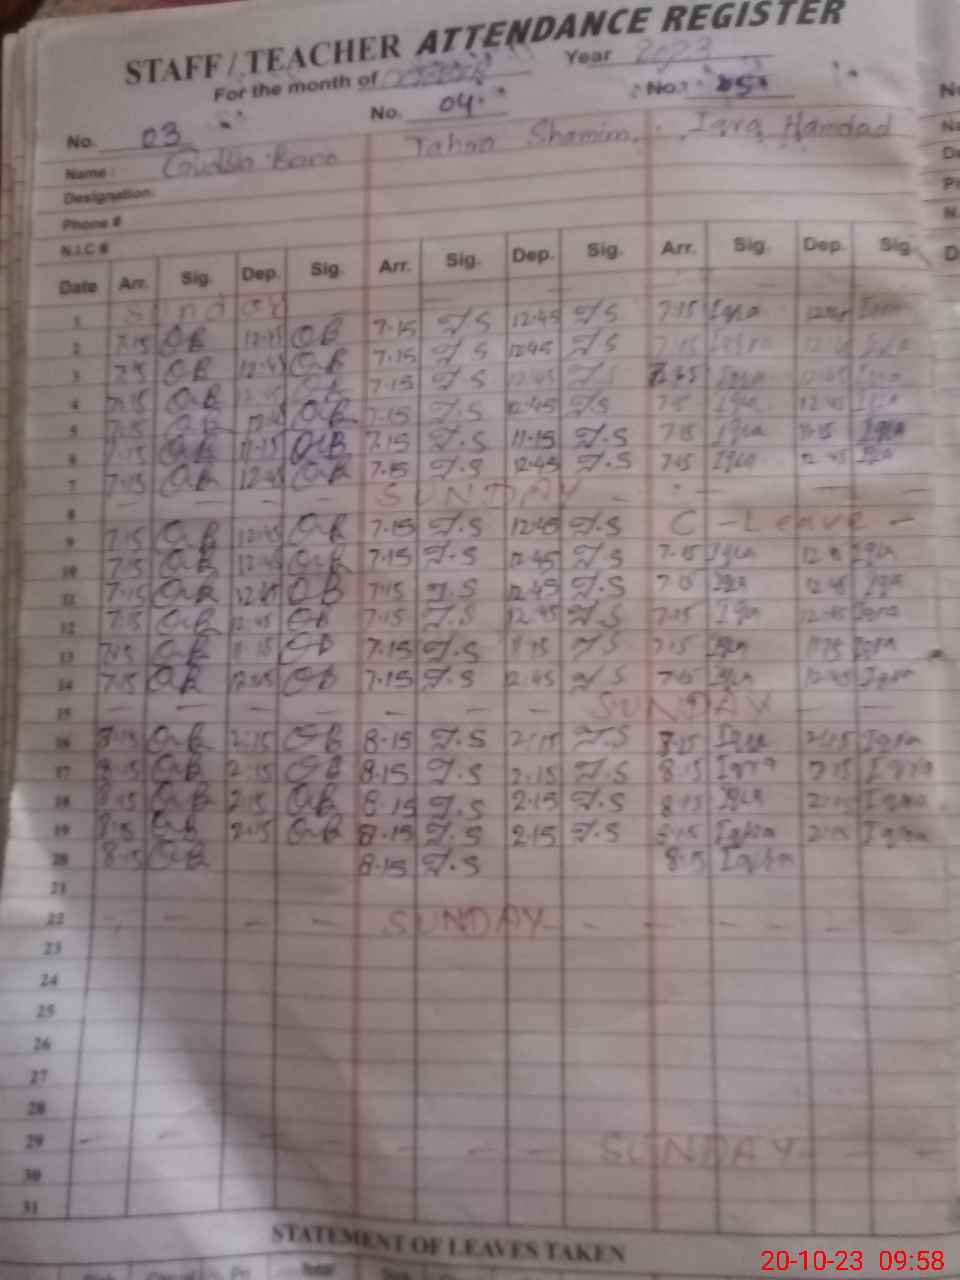 STAFF / TEACHER ATTENDANCE REGISTER
For the month of Year 2023
No. 03 No. 04 No. 05
Name: Bano Tahra Shamim Iqra Hamdad
Designation:
Phone #
N.I.C #
Date Arr. Sig. Dep. Sig. Arr. Sig. Dep. Sig. Arr. Sig. Dep. Sig.
1 Sunday
2 7.15 OB 12.45 OB 7.15 T.S 12.45 T.S 7.15 Iqra 12.45 Iqra
3 7.15 OB 12.45 OB 7.15 T.S 12.45 T.S 7.15 Iqra 12.45 Iqra
4 7.15 OB 12.45 OB 7.15 T.S 12.45 T.S 7.15 Iqra 12.45 Iqra
5 7.15 OB 12.45 OB 7.15 T.S 12.45 T.S 7.15 Iqra 12.45 Iqra
6 7.15 OB 11.15 OB 7.15 T.S 11.15 T.S 7.15 Iqra 11.15 Iqra
7 7.15 OB 12.45 OB 7.15 T.S 12.45 T.S 7.15 Iqra 12.45 Iqra
8 - - - - SUNDAY - - - -
9 7.15 OB 12.45 OB 7.15 T.S 12.45 T.S C - Leave -
10 7.15 OB 12.45 OB 7.15 T.S 12.45 T.S 7.15 Iqra 12.45 Iqra
11 7.15 OB 12.45 OB 7.15 T.S 12.45 T.S 7.15 Iqra 12.45 Iqra
12 7.15 OB 12.45 OB 7.15 T.S 12.45 T.S 7.15 Iqra 12.45 Iqra
13 7.15 OB 11.15 OB 7.15 T.S 11.15 T.S 7.15 Iqra 11.15 Iqra
14 7.15 OB 12.45 OB 7.15 T.S 12.45 T.S 7.15 Iqra 12.45 Iqra
15 - - - - - - - SUNDAY - -
16 8.15 OB 2.15 OB 8.15 T.S 2.15 T.S 8.15 Iqra 2.15 Iqra
17 8.15 OB 2.15 OB 8.15 T.S 2.15 T.S 8.15 Iqra 2.15 Iqra
18 8.15 OB 2.15 OB 8.15 T.S 2.15 T.S 8.15 Iqra 2.15 Iqra
19 8.15 OB 2.15 OB 8.15 T.S 2.15 T.S 8.15 Iqra 2.15 Iqra
20 8.15 OB 8.15 T.S 8.15 Iqra
21
22 - - - - SUNDAY - - - - - -
23
24
25
26
27
28
29 - - - - - - SUNDAY - -
30
31
STATEMENT OF LEAVES TAKEN
20-10-23 09:58